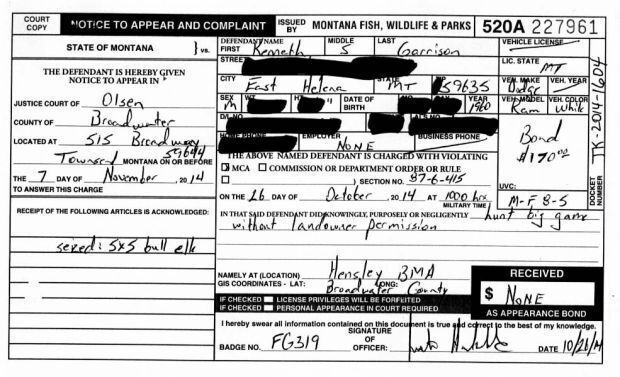 COURT COPY
NOTICE TO APPEAR AND COMPLAINT
ISSUED BY
MONTANA FISH, WILDLIFE & PARKS
520A 227961
STATE OF MONTANA } vs.
THE DEFENDANT IS HEREBY GIVEN
NOTICE TO APPEAR IN
JUSTICE COURT OF Olsen
COUNTY OF Broadwater
LOCATED AT 515 Broadway
Townsend 59644 MONTANA ON OR BEFORE
THE 7 DAY OF November, 2014
TO ANSWER THIS CHARGE
RECEIPT OF THE FOLLOWING ARTICLES IS ACKNOWLEDGED:
sexed: 5x5 bull elk
DEFENDANT NAME
FIRST Kenneth MIDDLE S LAST Garrison
STREET
CITY East Helena STATE MT ZIP 59635
SEX M WT HT " DATE OF BIRTH MO. DAY YEAR 1960
D/L NO.
HOME PHONE EMPLOYER NONE BUSINESS PHONE
THE ABOVE NAMED DEFENDANT IS CHARGED WITH VIOLATING
MCA COMMISSION OR DEPARTMENT ORDER OR RULE
) SECTION NO. 87-6-415
ON THE 26 DAY OF October, 2014 AT 1000 hrs
MILITARY TIME
IN THAT SAID DEFENDANT DID KNOWINGLY, PURPOSELY OR NEGLIGENTLY hunt big game
without landowner permission
NAMELY AT (LOCATION) Hensley BMA
GIS COORDINATES - LAT: LONG:
Broadwater County
IF CHECKED LICENSE PRIVILEGES WILL BE FORFEITED
IF CHECKED PERSONAL APPEARANCE IN COURT REQUIRED
I hereby swear all information contained on this document is true and correct to the best of my knowledge.
BADGE NO. FG319 SIGNATURE OF OFFICER: DATE 10/26/14
VEHICLE LICENSE
LIC. STATE
MT
VEH. MAKE VEH. YEAR
Dodge
VEH. MODEL VEH. COLOR
Ram White
Bond
$170.00
UVC:
M-F 8-5
RECEIVED
$ NONE
AS APPEARANCE BOND
DOCKET NUMBER
TK-2014-1604